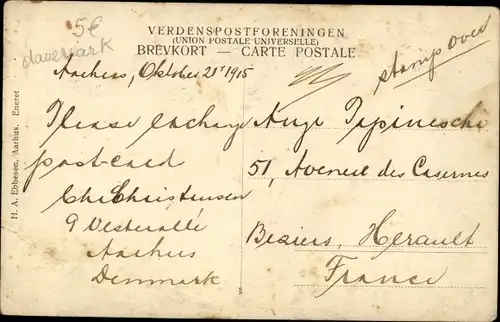 5€
danemark
VERDENSPOSTFORENINGEN
(UNION POSTALE UNIVERSELLE)
BREVKORT — CARTE POSTALE
stamp over
Aarhus, Oktober 21st 1915
Please exchange
post-card
Chr Christensen
9 Vesterallé
Aarhus
Denmark
Ange Pepineschi
51, Avenue des Casernes
Beziers, Herault
France
H. A. Ebbesen, Aarhus. Eneret